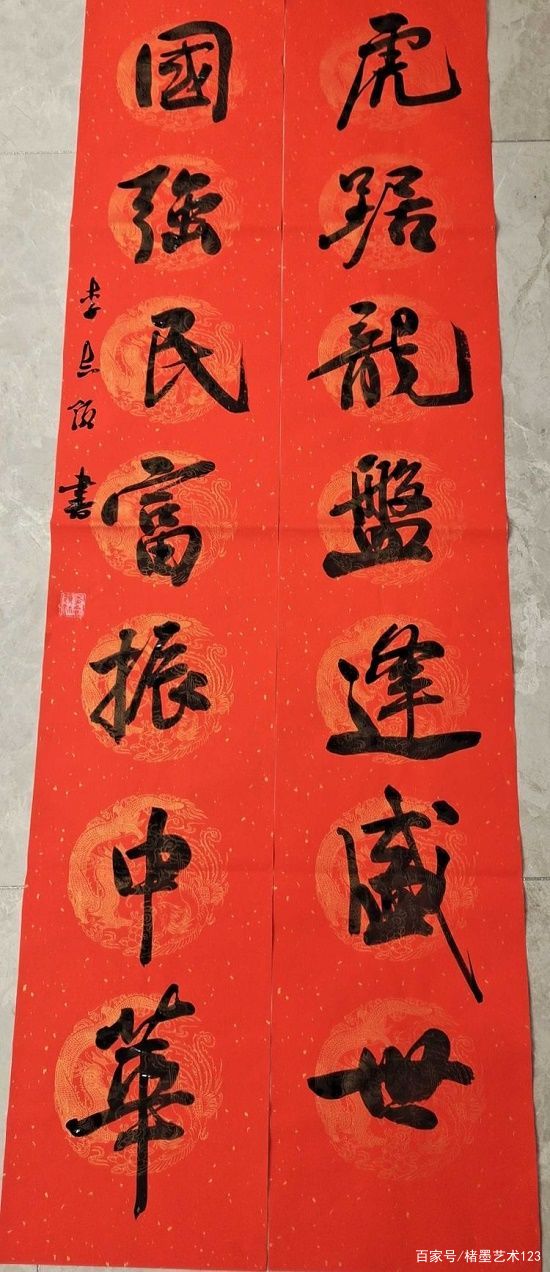 虎踞龍盤逢盛世
國強民富振中華
李志强 書
百家号/楮墨艺术123